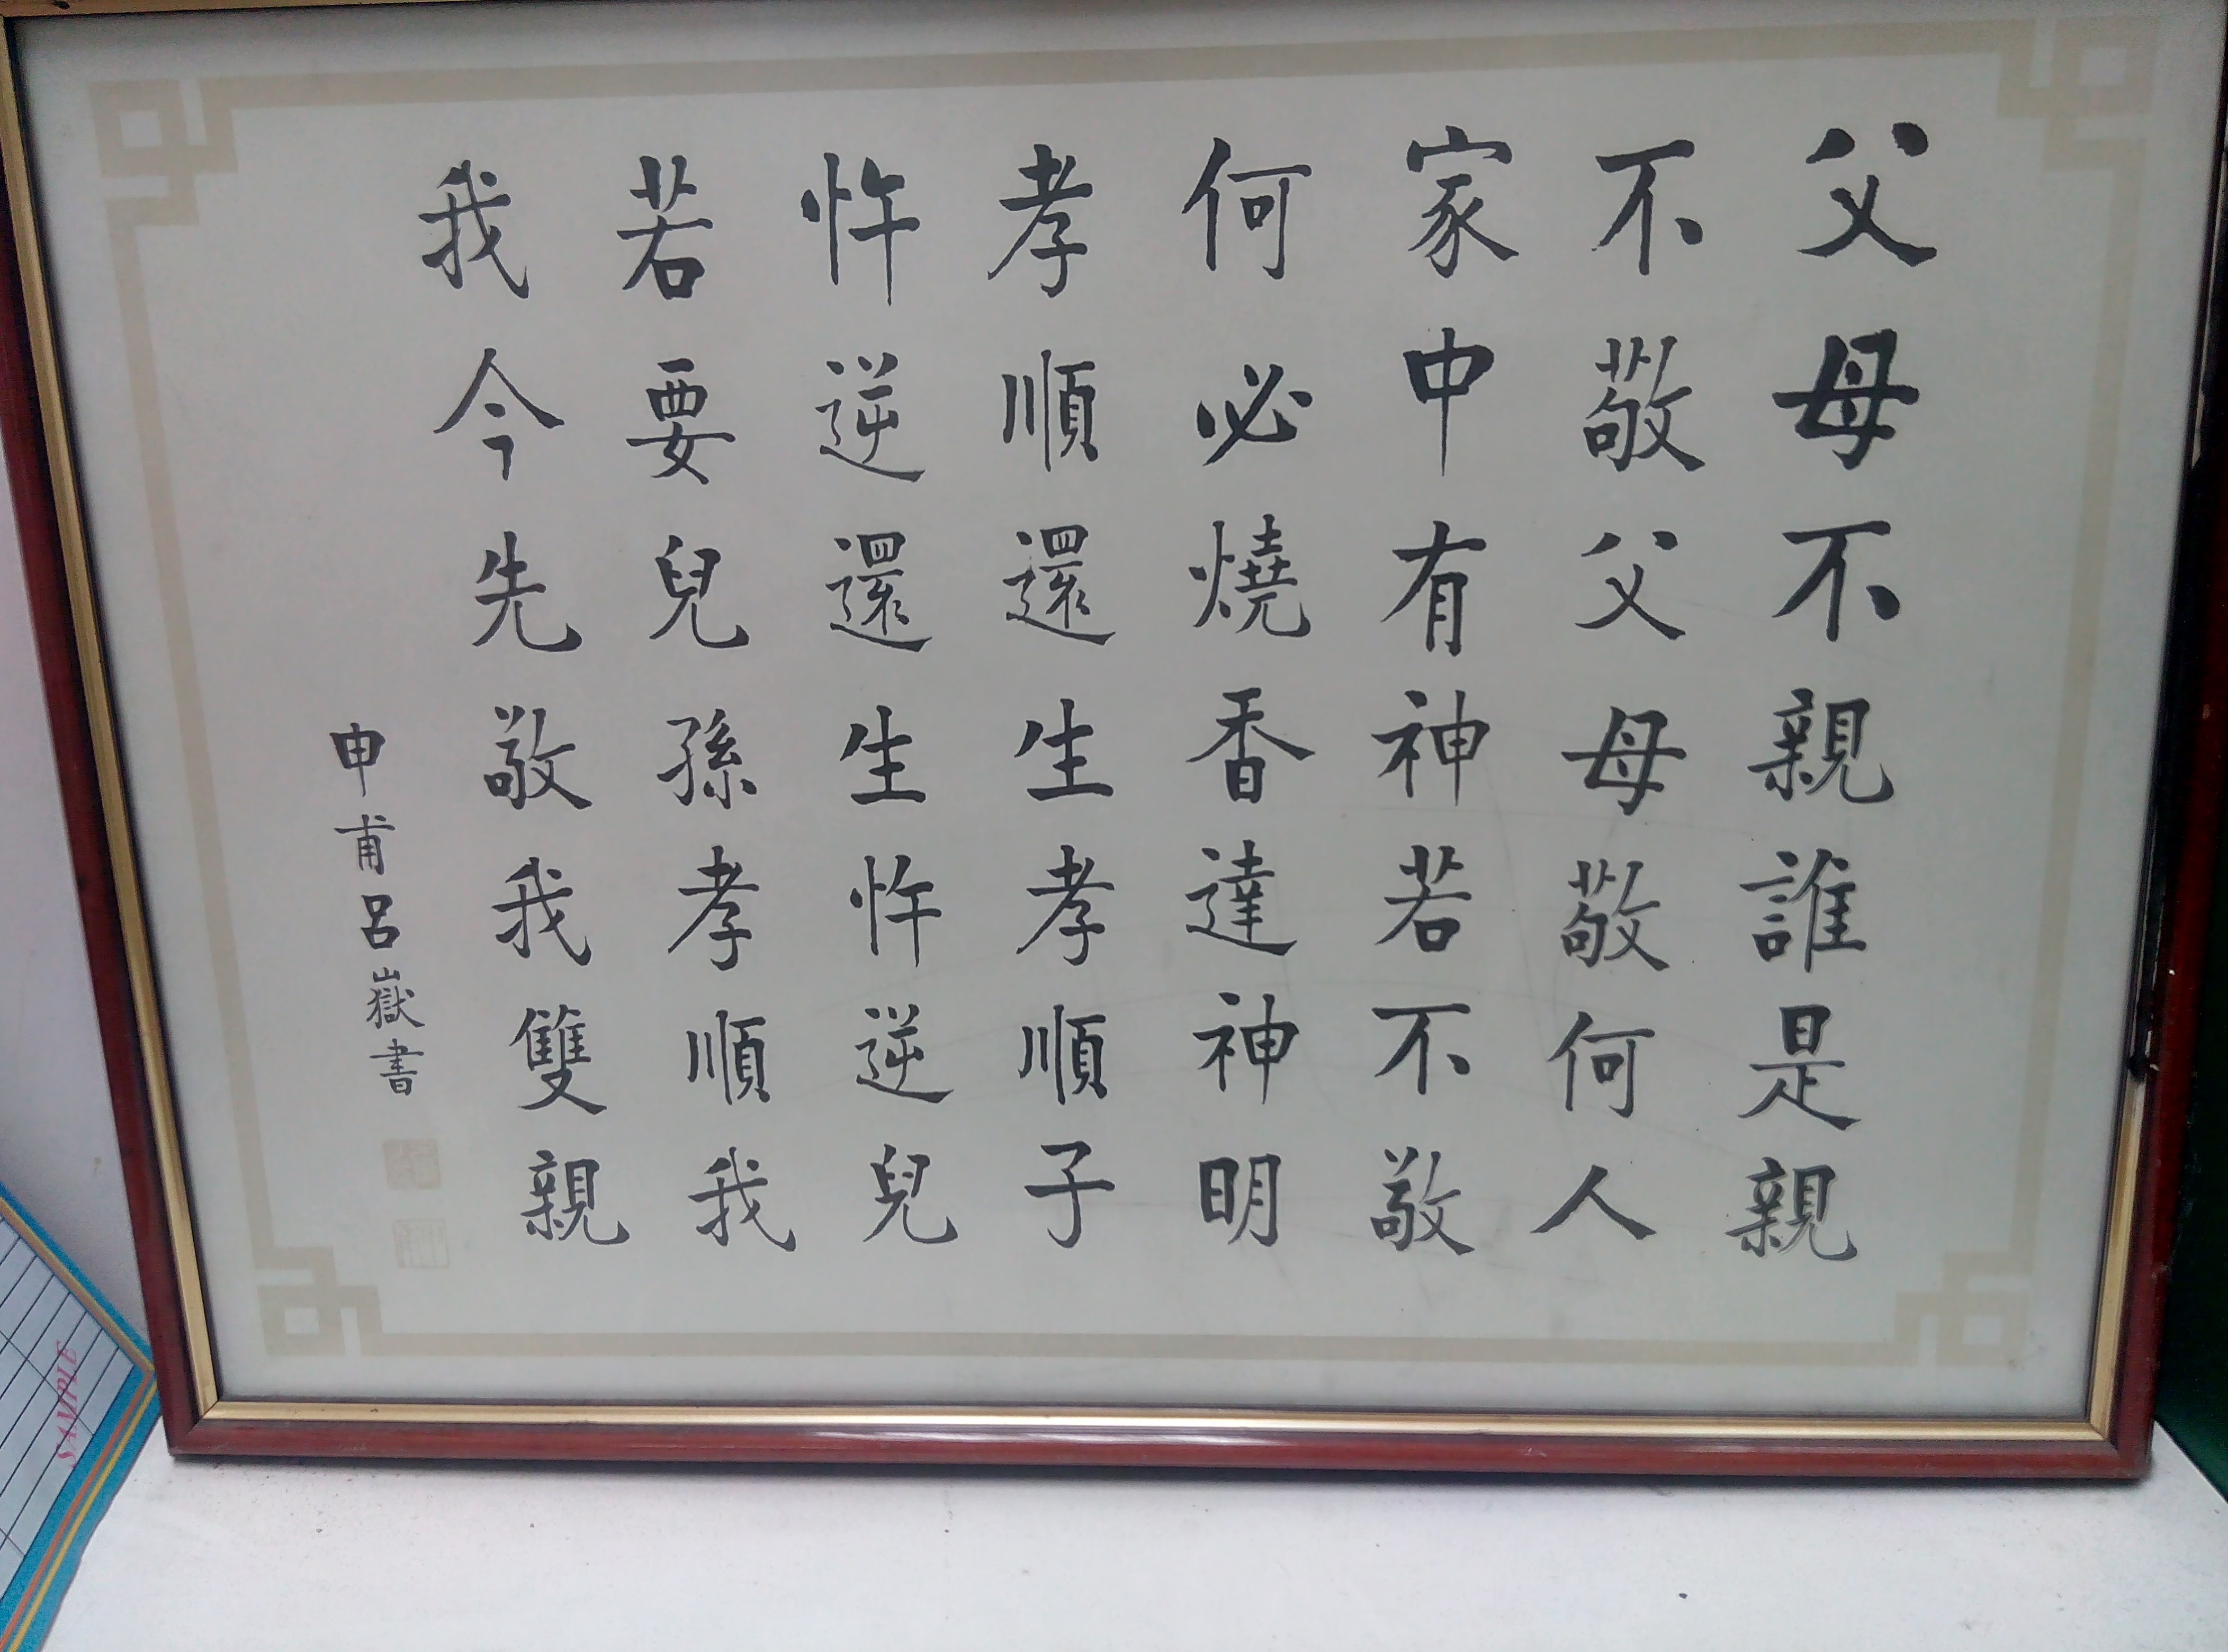 父母不親誰是親
不敬父母敬何人
家中有神若不敬
何必燒香達神明
孝順還生孝順子
忤逆還生忤逆兒
若要兒孫孝順我
我今先敬我雙親
申甫呂嶽書
SAMPLE